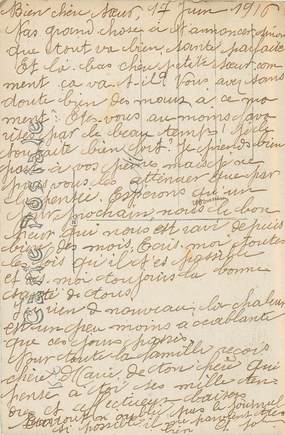 Bien chère Sœur, 17 Juin 1916
Pas grand chose à t'annoncer sinon
que tout va bien, santé parfaite
Et là-bas chère petite Sœur com-
ment ça va-t-il? Vous avez sans
doute bien des maux à ce mo-
ment? Êtes-vous au moins favo-
risés par le beau temps? je le
souhaite bien fort! Je prends bien
part à vos peines mais je ne
puis vous les atténuer que par
la pensée. Espérons qu'un
jour prochain, nous
bonheur qui nous est ravi depuis
bien des mois. Écris-moi toutes
les fois qu'il t'est possible
et dis-moi toujours la bonne
santé de tous.
Rien de nouveau; la chaleur
est un peu moins accablante
que ces jours passés.
Pour toute la famille reçois
chère Marie de ton frère qui
pense à toi ses mille ten-
dres et affectueux baisers
pas le journal
si possible
Carte Postale